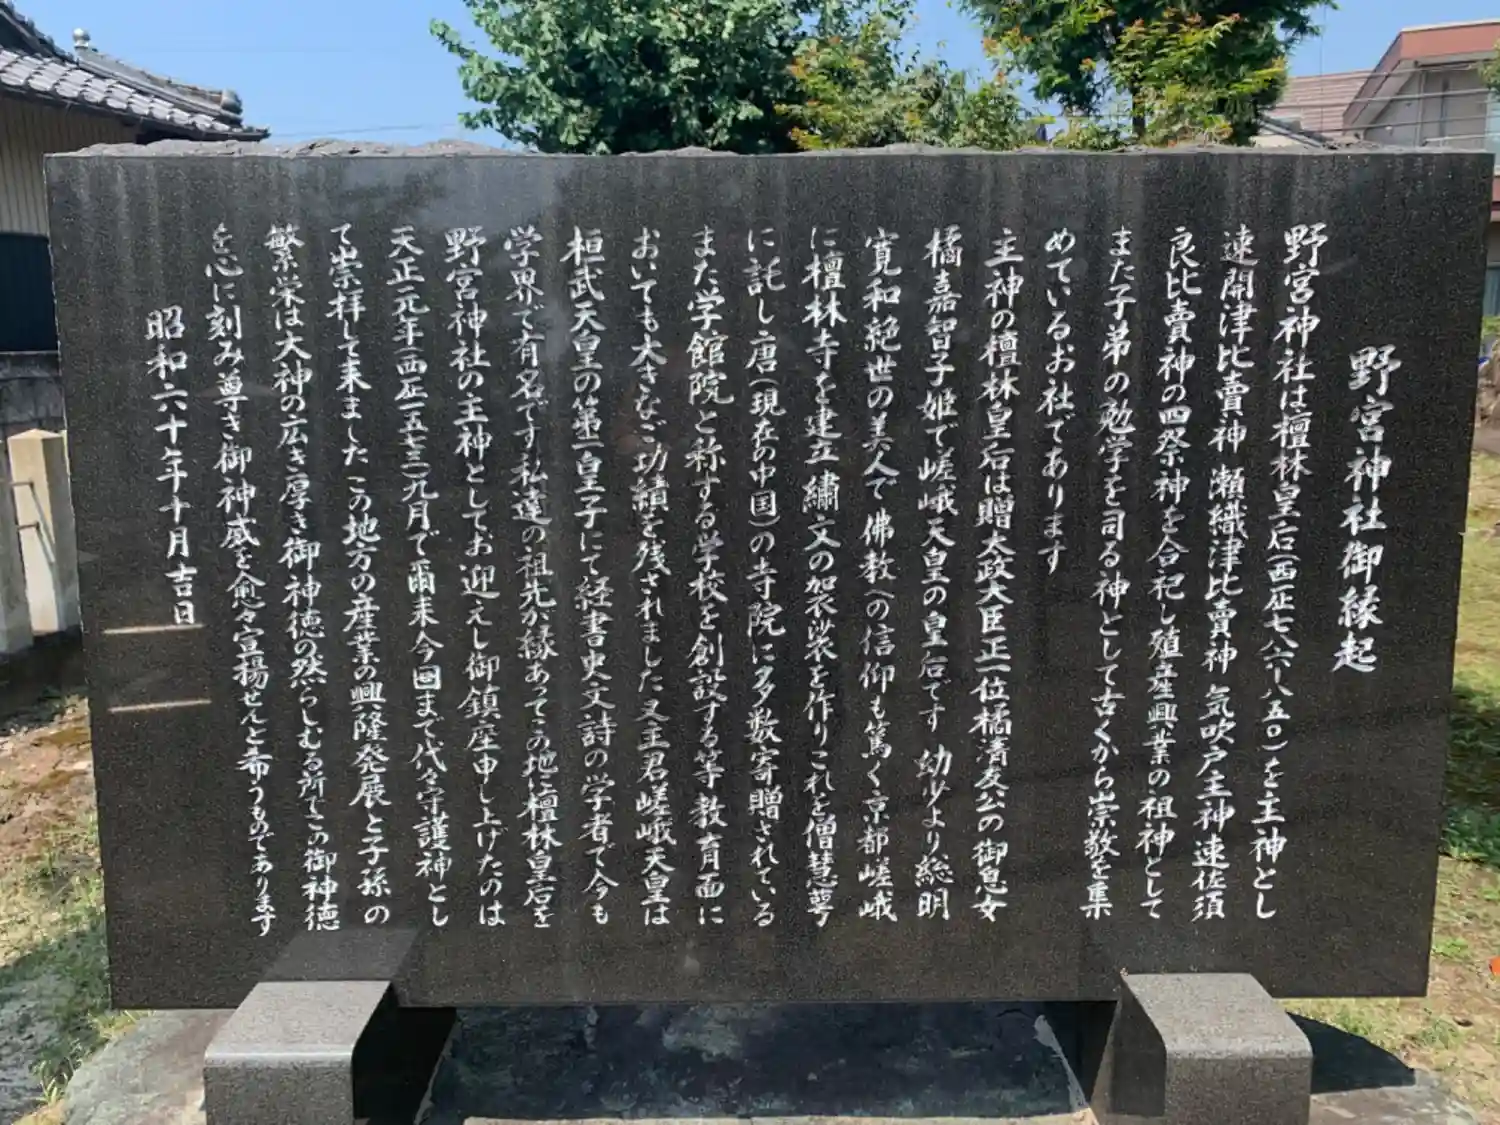 野宮神社御縁起
野宮神社は檀林皇后(西歴七八六〜八五〇)を主神とし
速開津比賣神 瀬織津比賣神 気吹戸主神 速佐須
良比賣神の四祭神を合祀し殖産興業の祖神として
また子弟の勉学を司る神として古くから崇敬を集
めているお社であります
主神の檀林皇后は贈太政大臣正一位橘清友公の御息女
橘嘉智子姫で嵯峨天皇の皇后です 幼少より総明
寛和絶世の美人で佛教への信仰も篤く京都嵯峨
に檀林寺を建立繍文の袈裟を作りこれを僧慧萼
に託し唐(現在の中国)の寺院に多数寄贈されている
また学館院と称する学校を創設する等教育面に
おいても大きなご功績を残されました又主君嵯峨天皇は
桓武天皇の第一皇子にて経書史文詩の学者で今も
学界で有名です私達の祖先が縁あってこの地に檀林皇后を
野宮神社の主神としてお迎えし御鎮座申し上げたのは
天正元年(西歴一五七三)九月で爾来今国まで代々守護神とし
て崇拝して来ましたこの地方の産業の興隆発展と子孫の
繁栄は大神の広き厚き御神徳の然らしむる所でこの御神徳
を心に刻み尊き御神威を愈々宣揚せんと希うものであります
昭和六十年十月吉日